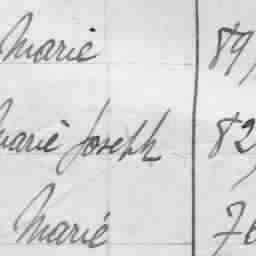 Marie 89
Marie Joseph 82
Marie 76